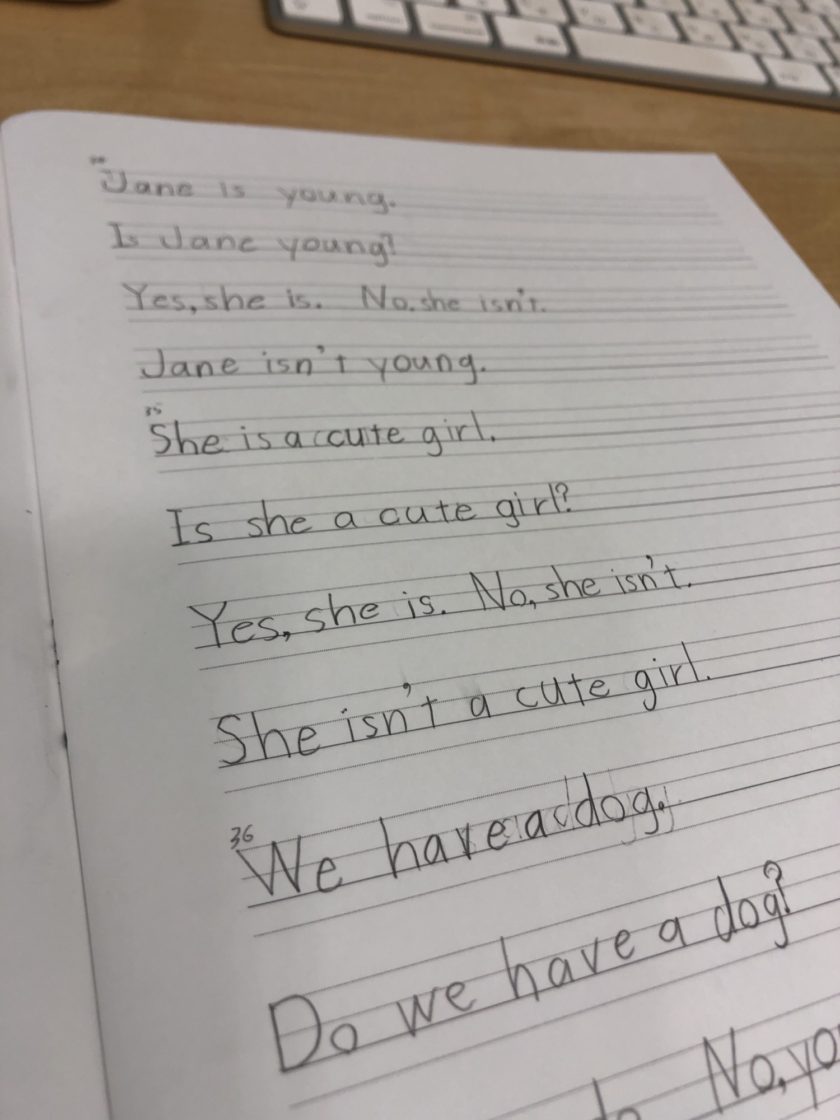 Jane is young.
Is Jane young?
Yes, she is. No, she isn't.
Jane isn't young.
35
She is a cute girl.
Is she a cute girl?
Yes, she is. No, she isn't.
She isn't a cute girl.
36
We have a dog.
Do we have a dog?
No, yo